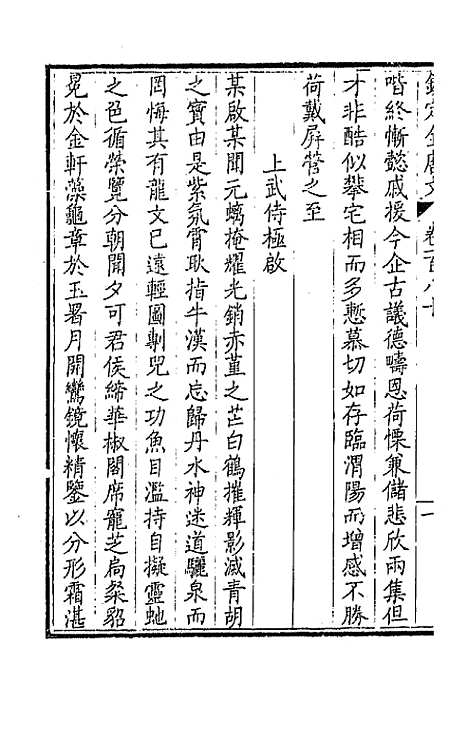 欽定全唐文 卷一百八十 一
喈終慚懿戚援今企古議德疇恩荷慄兼儲悲欣兩集但
才非酷似舉宅相而多慙慕切如存臨渭陽而增感不勝
荷戴屏營之至
上武侍極啟
某啟某聞元螭掩耀光銷赤堇之芒白鶴摧輝影滅青胡
之寶由是紫氛霄耿指牛漢而忘歸丹水神迷道驪泉而
罔悔其有龍文已遠輕圖剸兕之功魚目濫持自擬靈虵
之色循榮覽分朝聞夕可君侯締華椒閣席寵芝扃粲貂
冕於金軒藻龜章於玉署月開鸞鏡懷精鑒以分形霜湛